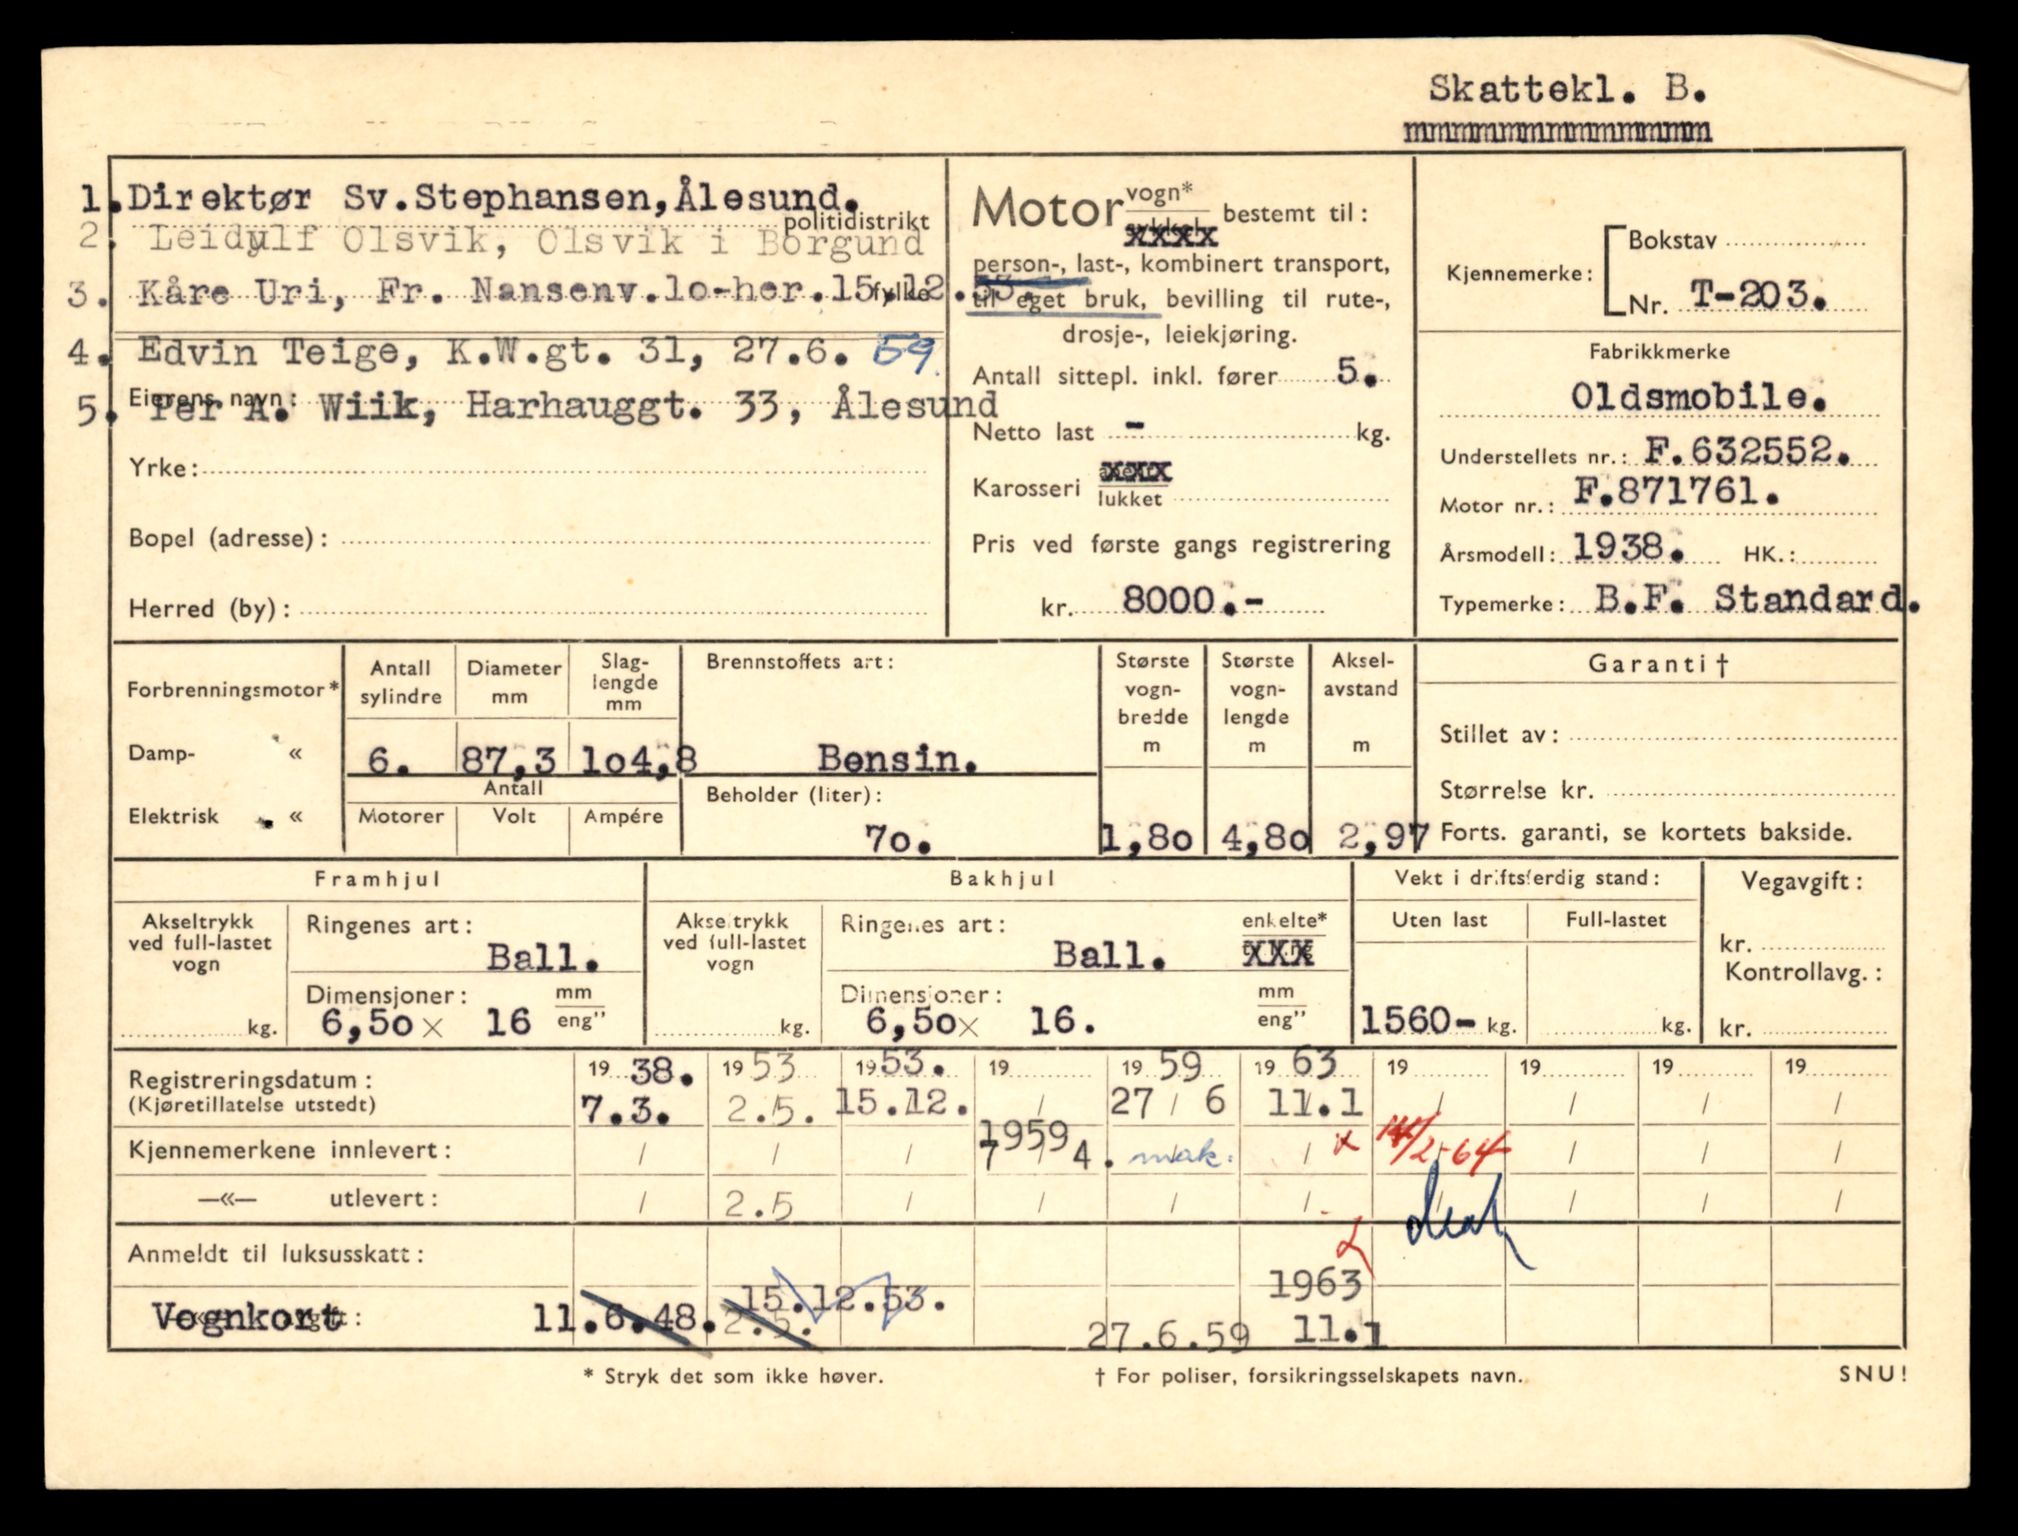 Skattekl. B.
mmmmmmmmmmmmmmmm
1. Direktør Sv. Stephansen, Ålesund.
politidistrikt
2. Leidulf Olsvik, Olsvik i Borgund
3. Kåre Uri, Fr. Nansenv. lo-her. 15.12.53.
fylke
4. Edvin Teige, K.W.gt. 31, 27.6. 59.
Eierens navn:
5. Per A. Wiik, Harhauggt. 33, Ålesund
Yrke:
Bopel (adresse):
Herred (by):
Motor vogn* bestemt til:
sykkel xxxx
person-, last-, kombinert transport,
til eget bruk, bevilling til rute-,
drosje-, leiekjøring.
Antall sittepl. inkl. fører 5.
Netto last - kg.
Karosseri xxx lukket
Pris ved første gangs registrering
kr. 8000.-
Kjennemerke: Bokstav
Nr. T-203.
Fabrikkmerke
Oldsmobile.
Understellets nr.: F.632552.
Motor nr.: F.871761.
Årsmodell: 1938. HK.:
Typemerke: B.F. Standard.
Forbrenningsmotor*
Damp- «
Elektrisk «
Antall sylindre
Diameter mm
Slaglengde mm
6. 87,3 lo4,8
Antall
Motorer Volt Ampére
Brennstoffets art:
Bensin.
Beholder (liter):
7o.
Største vognbredde m
1,8o
Største vognlengde m
4,8o
Akselavstand m
2,97
Garanti †
Stillet av:
Størrelse kr.
Forts. garanti, se kortets bakside.
Framhjul
Akseltrykk ved full-lastet vogn
kg.
Ringenes art:
Ball.
Dimensjoner: mm
6,5o x 16 eng"
Bakhjul
Akseltrykk ved full-lastet vogn
kg.
Ringenes art: enkelte*
Ball. XXX
Dimensjoner: mm
6,5o x 16. eng"
Vekt i driftsferdig stand:
Uten last Full-lastet
1560- kg. kg.
Vegavgift:
kr.
Kontrollavg.:
kr.
Registreringsdatum: 19 38. 19 53 19 53. 19 19 59 19 63 19 19 19 19
(Kjøretillatelse utstedt) 7.3. 2.5. 15.12. / 27 / 6 11.1 / / / /
1959
Kjennemerkene innlevert: / / / 7 / 4. mak. / x 14/2-64 / / /
—«— utlevert: / 2.5 / / / / / / / /
Anmeldt til luksusskatt:
1963
15.12.53.
Vognkort 11.6.48. 2.5. 27.6.59 11.1
* Stryk det som ikke høver.
† For poliser, forsikringsselskapets navn.
SNU!